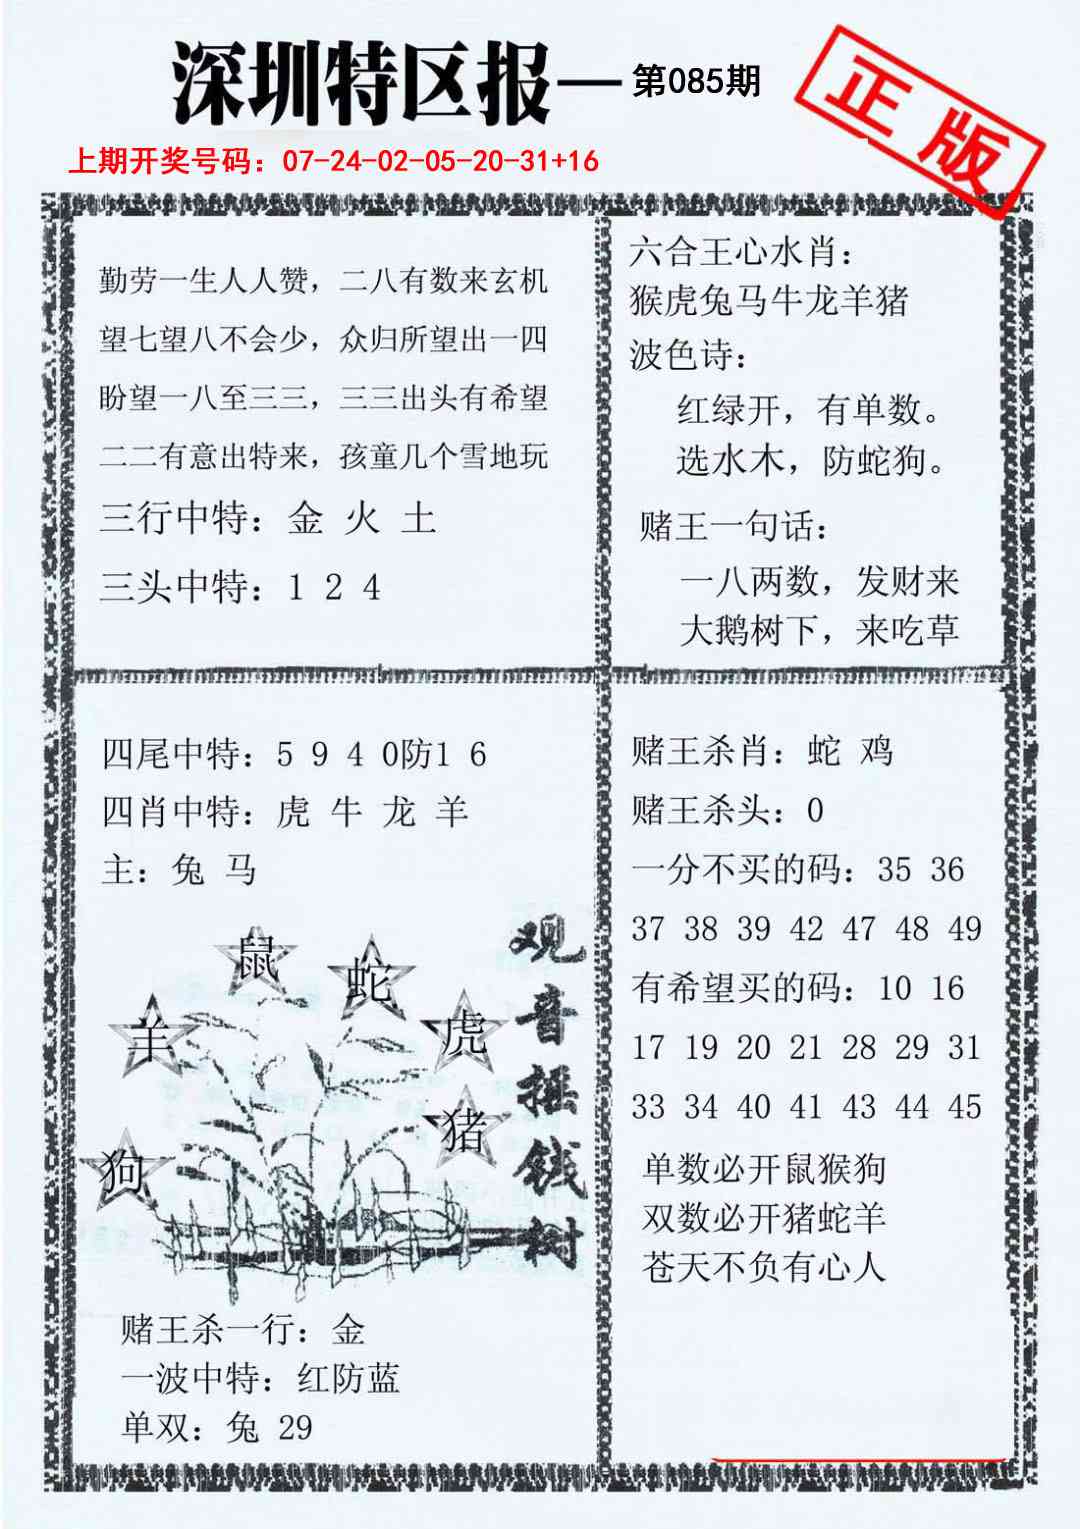 深圳特区报—第085期
正版
上期开奖号码：07-24-02-05-20-31+16
勤劳一生人人赞，二八有数来玄机
望七望八不会少，众归所望出一四
盼望一八至三三，三三出头有希望
二二有意出特来，孩童几个雪地玩
三行中特：金 火 土
三头中特：1 2 4
六合王心水肖：
猴虎兔马牛龙羊猪
波色诗：
红绿开，有单数。
选水木，防蛇狗。
赌王一句话：
一八两数，发财来
大鹅树下，来吃草
四尾中特：5 9 4 0防1 6
四肖中特：虎 牛 龙 羊
主：兔 马
鼠
蛇
羊
虎
猪
狗
观音摇钱树
赌王杀一行：金
一波中特：红防蓝
单双：兔 29
赌王杀肖：蛇 鸡
赌王杀头：0
一分不买的码：35 36
37 38 39 42 47 48 49
有希望买的码：10 16
17 19 20 21 28 29 31
33 34 40 41 43 44 45
单数必开鼠猴狗
双数必开猪蛇羊
苍天不负有心人